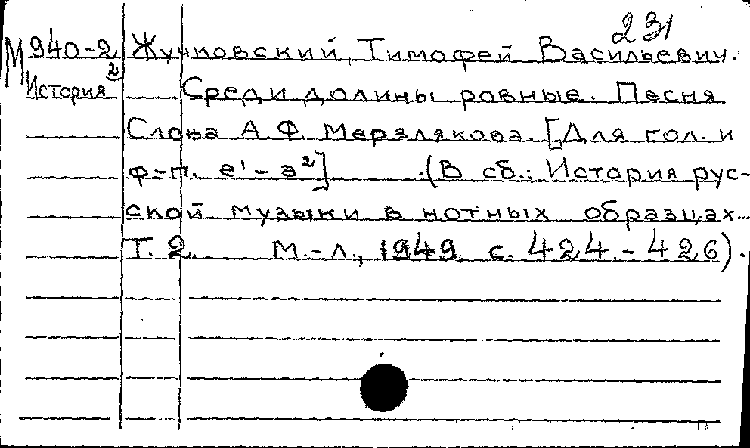 231
М 940-2 Жучковский, Тимофей Васильевич.
История 2 Среди долины ровные. Песня
Слова А.Ф. Мерзлякова. [Для гол. и
ф-п. e¹-a²] (В сб.: История рус-
ской музыки в нотных образцах...
Т. 2. М.-Л., 1949 с. 424-426).